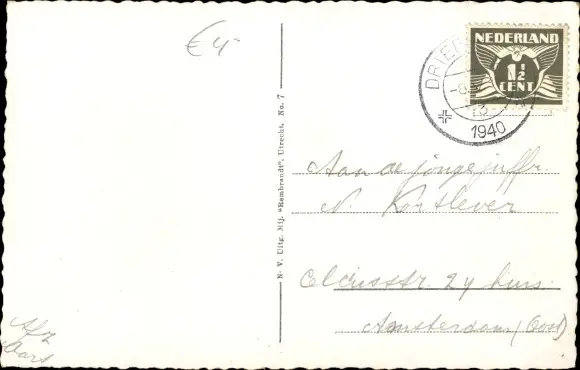 €4-
NEDERLAND
1½
CENT
DRIE
1940
N. V. Uitg. Mij. "Rembrandt", Utrecht. No. 7
Aan de jongejuffr.
N. Kortlever
24 huis.
Amsterdam (Oost)
Afz